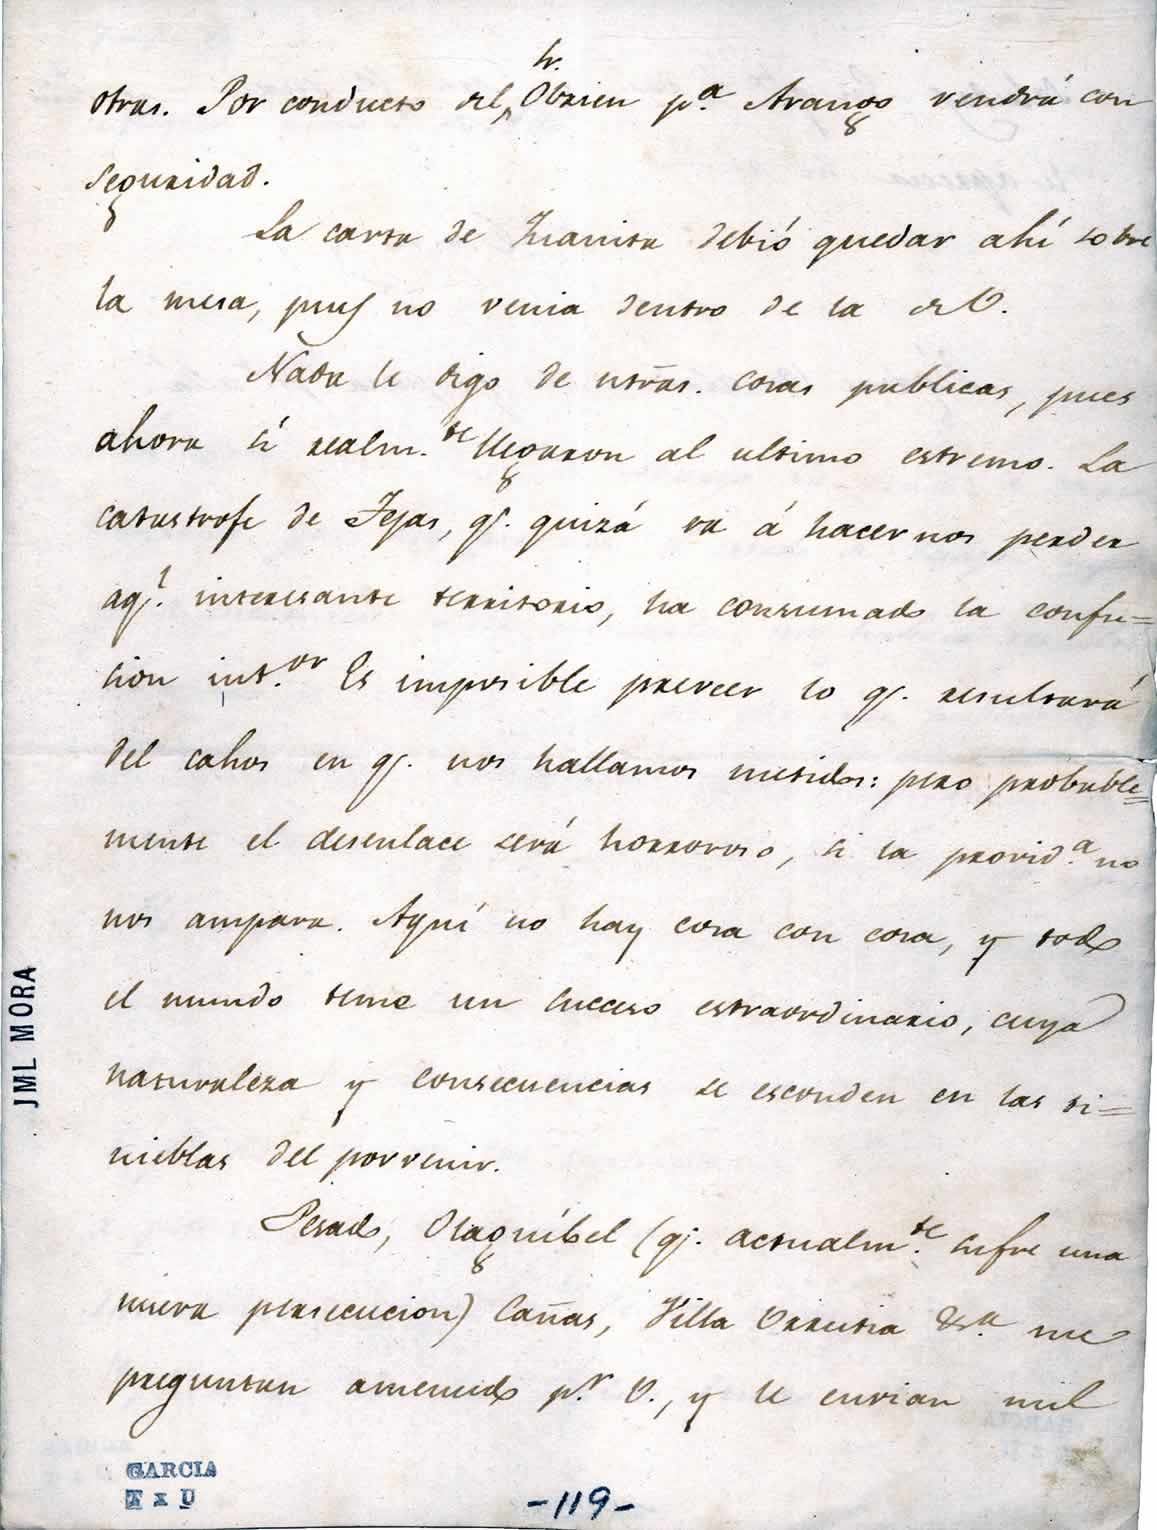 Sr.
otras. Por conducto del Obrien p.ª Arango vendrá con
seguridad.
La carta de Juanita debió quedar ahí sobre
la mesa, pues no venia dentro de la de V.
Nada le digo de ntrãs. cosas publicas, pues
ahora sí realm.te llegaron al ultimo estremo. La
catastrofe de Tejas, q. quizá va á hacernos perder
aq.l interesante territorio, ha consumado la confu=
cion int.or Es imposible preveer lo q. resultará
del cahos en q. nos hallamos metidos: pero probable=
mente el desenlace será horroroso, si la provid.a no
nos ampara. Aquí no hay cosa con cosa, y todo
el mundo teme un suceso estraordinario, cuya
naturaleza y consecuencias se esconden en las ti=
nieblas del porvenir.
Pesado, Olaguíbel (q. actualm.te sufre una
nueva persecucion) Cañas, Villa Urrutia &a. me
preguntan amenudo p.r V., y le envian mil
JML MORA
GARCIA
T x U
-119-